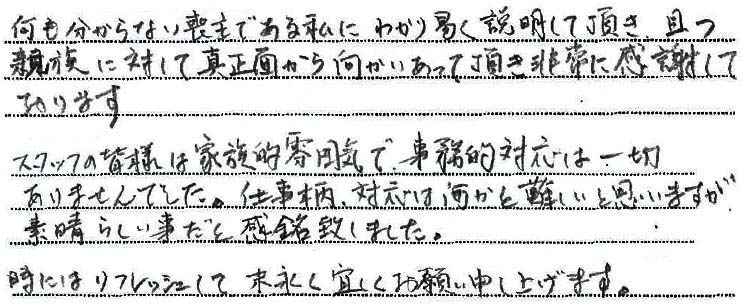 何も分からない喪主である私に わかり易く説明して頂き、且つ
親族に対して真正面から向かいあって頂き非常に感謝して
おります
スタッフの皆様は家族的雰囲気で、事務的対応は一切
ありませんでした。仕事柄、対応は何かと難しいと思いますが、
素晴らしい事だと感銘致しました。
時にはリフレッシュして 末永く宜しくお願い申し上げます。